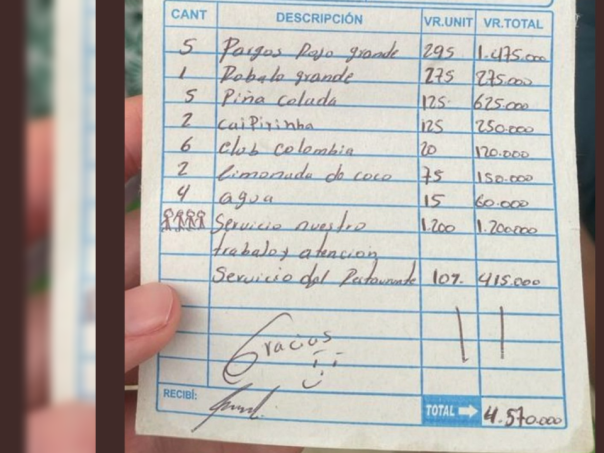 CANT DESCRIPCIÓN VR.UNIT VR.TOTAL
5 Pargos Rojo grande 295 1.475.000
1 Robalo grande 275 275.000
5 Piña colada 125 625.000
2 caipirinha 125 250.000
6 club colombia 20 120.000
2 limonada de coco 75 150.000
4 agua 15 60.000
Servicio nuestro 1.200 1.200.000
trabajo y atencion
Servicio del Restaurante 10% 415.000
Gracias
RECIBÍ:
TOTAL 4.570.000